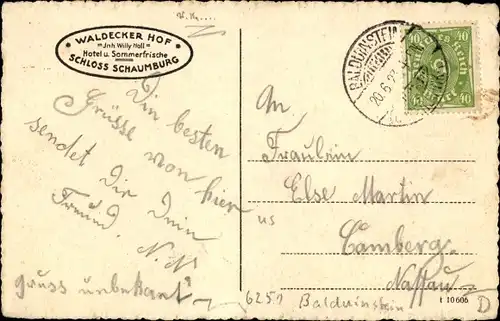 WALDECKER HOF
Inh. Willy Noll
Hotel u. Sommerfrische
SCHLOSS SCHAUMBURG
BALDUINSTEIN
20.6.23
40 40
Deutsches Reich
40 40
Die besten
Grüsse von hier
sendet Dir Dein
Freund. N.N.
Gruss unbekant
An
Fräulein
Else Martin
Camberg.
Nassau
6251 Balduinstein
t 10606
D